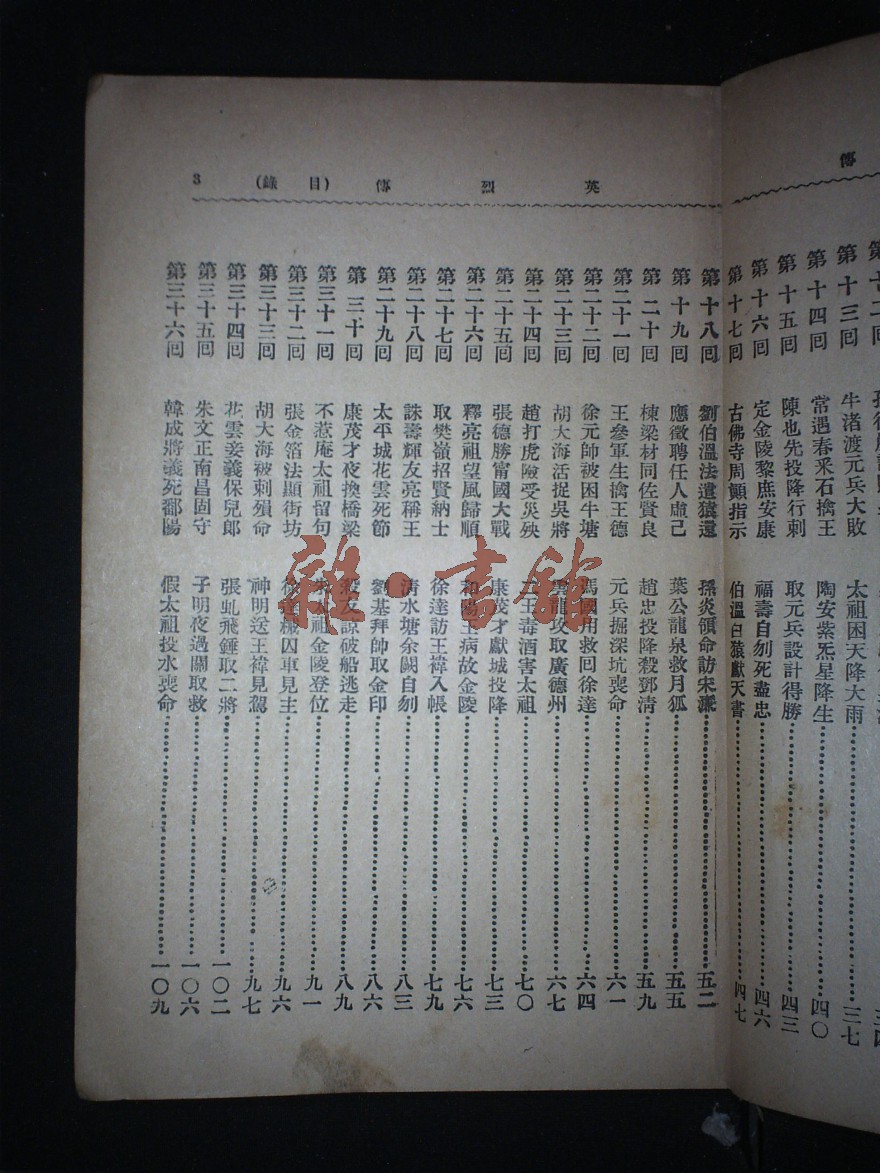 傳
第十三回 牛渚渡元兵大敗 太祖困天降大雨 三七
第十四回 常遇春采石擒王 陶安紫炁星降生 四〇
第十五回 陳也先投降行刺 取元兵設計得勝 四三
第十六回 定金陵黎庶安康 福壽自刎死盡忠 四六
第十七回 古佛寺周顚指示 伯溫白猿獻天書 四七
英烈傳 (目錄) 3
第十八回 劉伯溫法遣猿還 孫炎領命訪宋濂 五二
第十九回 應徵聘任人虛己 葉公龍泉救月狐 五五
第二十回 棟梁材同佐賢良 趙忠投降殺鄧淸 五九
第二十一回 王參軍生擒王德 元兵掘深坑喪命 六一
第二十二回 徐元帥被困牛塘 馮國用救回徐達 六四
第二十三回 胡大海活捉吳將 雲龍攻取廣德州 六七
第二十四回 趙打虎險受災殃 二王毒酒害太祖 七〇
第二十五回 張德勝甯國大戰 康茂才獻城投降 七三
第二十六回 釋亮祖望風歸順 和陽王病故金陵 七六
第二十七回 取樊嶺招賢納士 徐達訪王禕入帳 七九
第二十八回 誅壽輝友亮稱王 淸水塘余闕自刎 八三
第二十九回 太平城花雲死節 劉基拜帥取金印 八六
第三十回 康茂才夜換橋梁 殺友諒破船逃走 八九
第三十一回 不惹庵太祖留句 太祖金陵登位 九一
第三十二回 張金箔法顯街坊 徐達械囚車見主 九六
第三十三回 胡大海被刺殞命 神明送王禕見駕 九七
第三十四回 花雲妾義保兒郎 張虬飛錘取二將 一〇二
第三十五回 朱文正南昌固守 子明夜過關取救 一〇六
第三十六回 韓成將義死鄱陽 假太祖投水喪命 一〇九
雜·書館